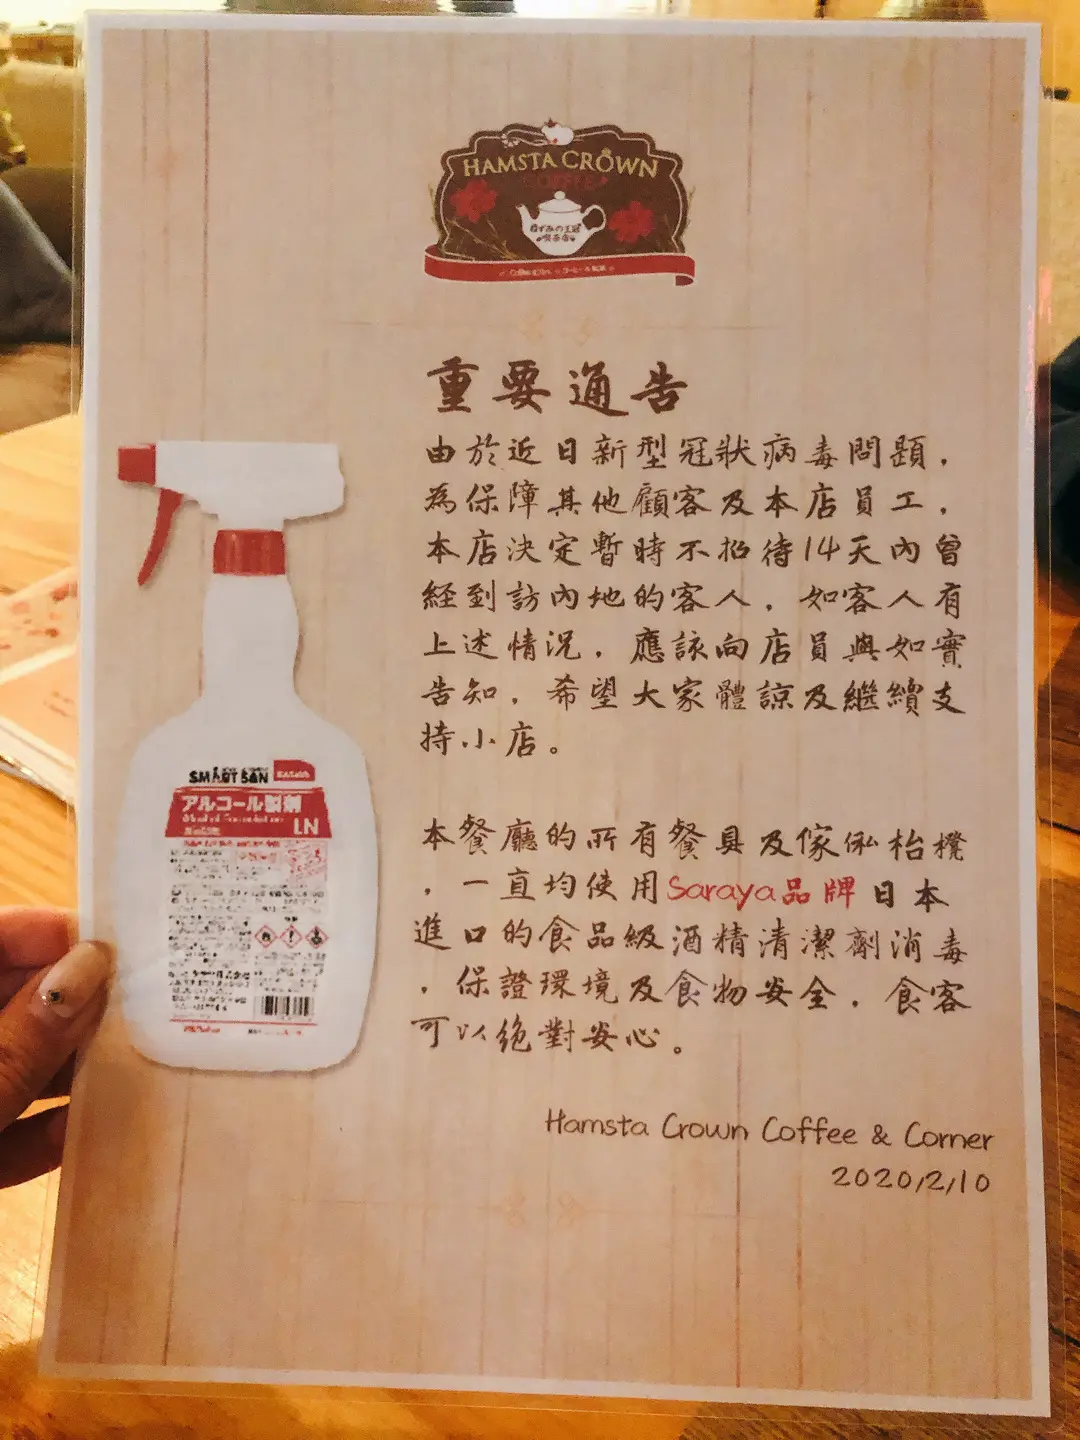 HAMSTA CROWN
COFFEE
ねずみの王冠
喫茶店
重要通告
由於近日新型冠狀病毒問題，
為保障其他顧客及本店員工，
本店決定暫時不招待14天內曾
經到訪內地的客人，如客人有
上述情況，應該向店員與如實
告知，希望大家體諒及繼續支
持小店。
本餐廳的所有餐具及傢俬枱櫈
，一直均使用Saraya品牌日本
進口的食品級酒精清潔劑消毒
，保證環境及食物安全，食客
可以絕對安心。
Hamsta Crown Coffee & Corner
2020/2/10
SMART SAN
アルコール製剤
LN